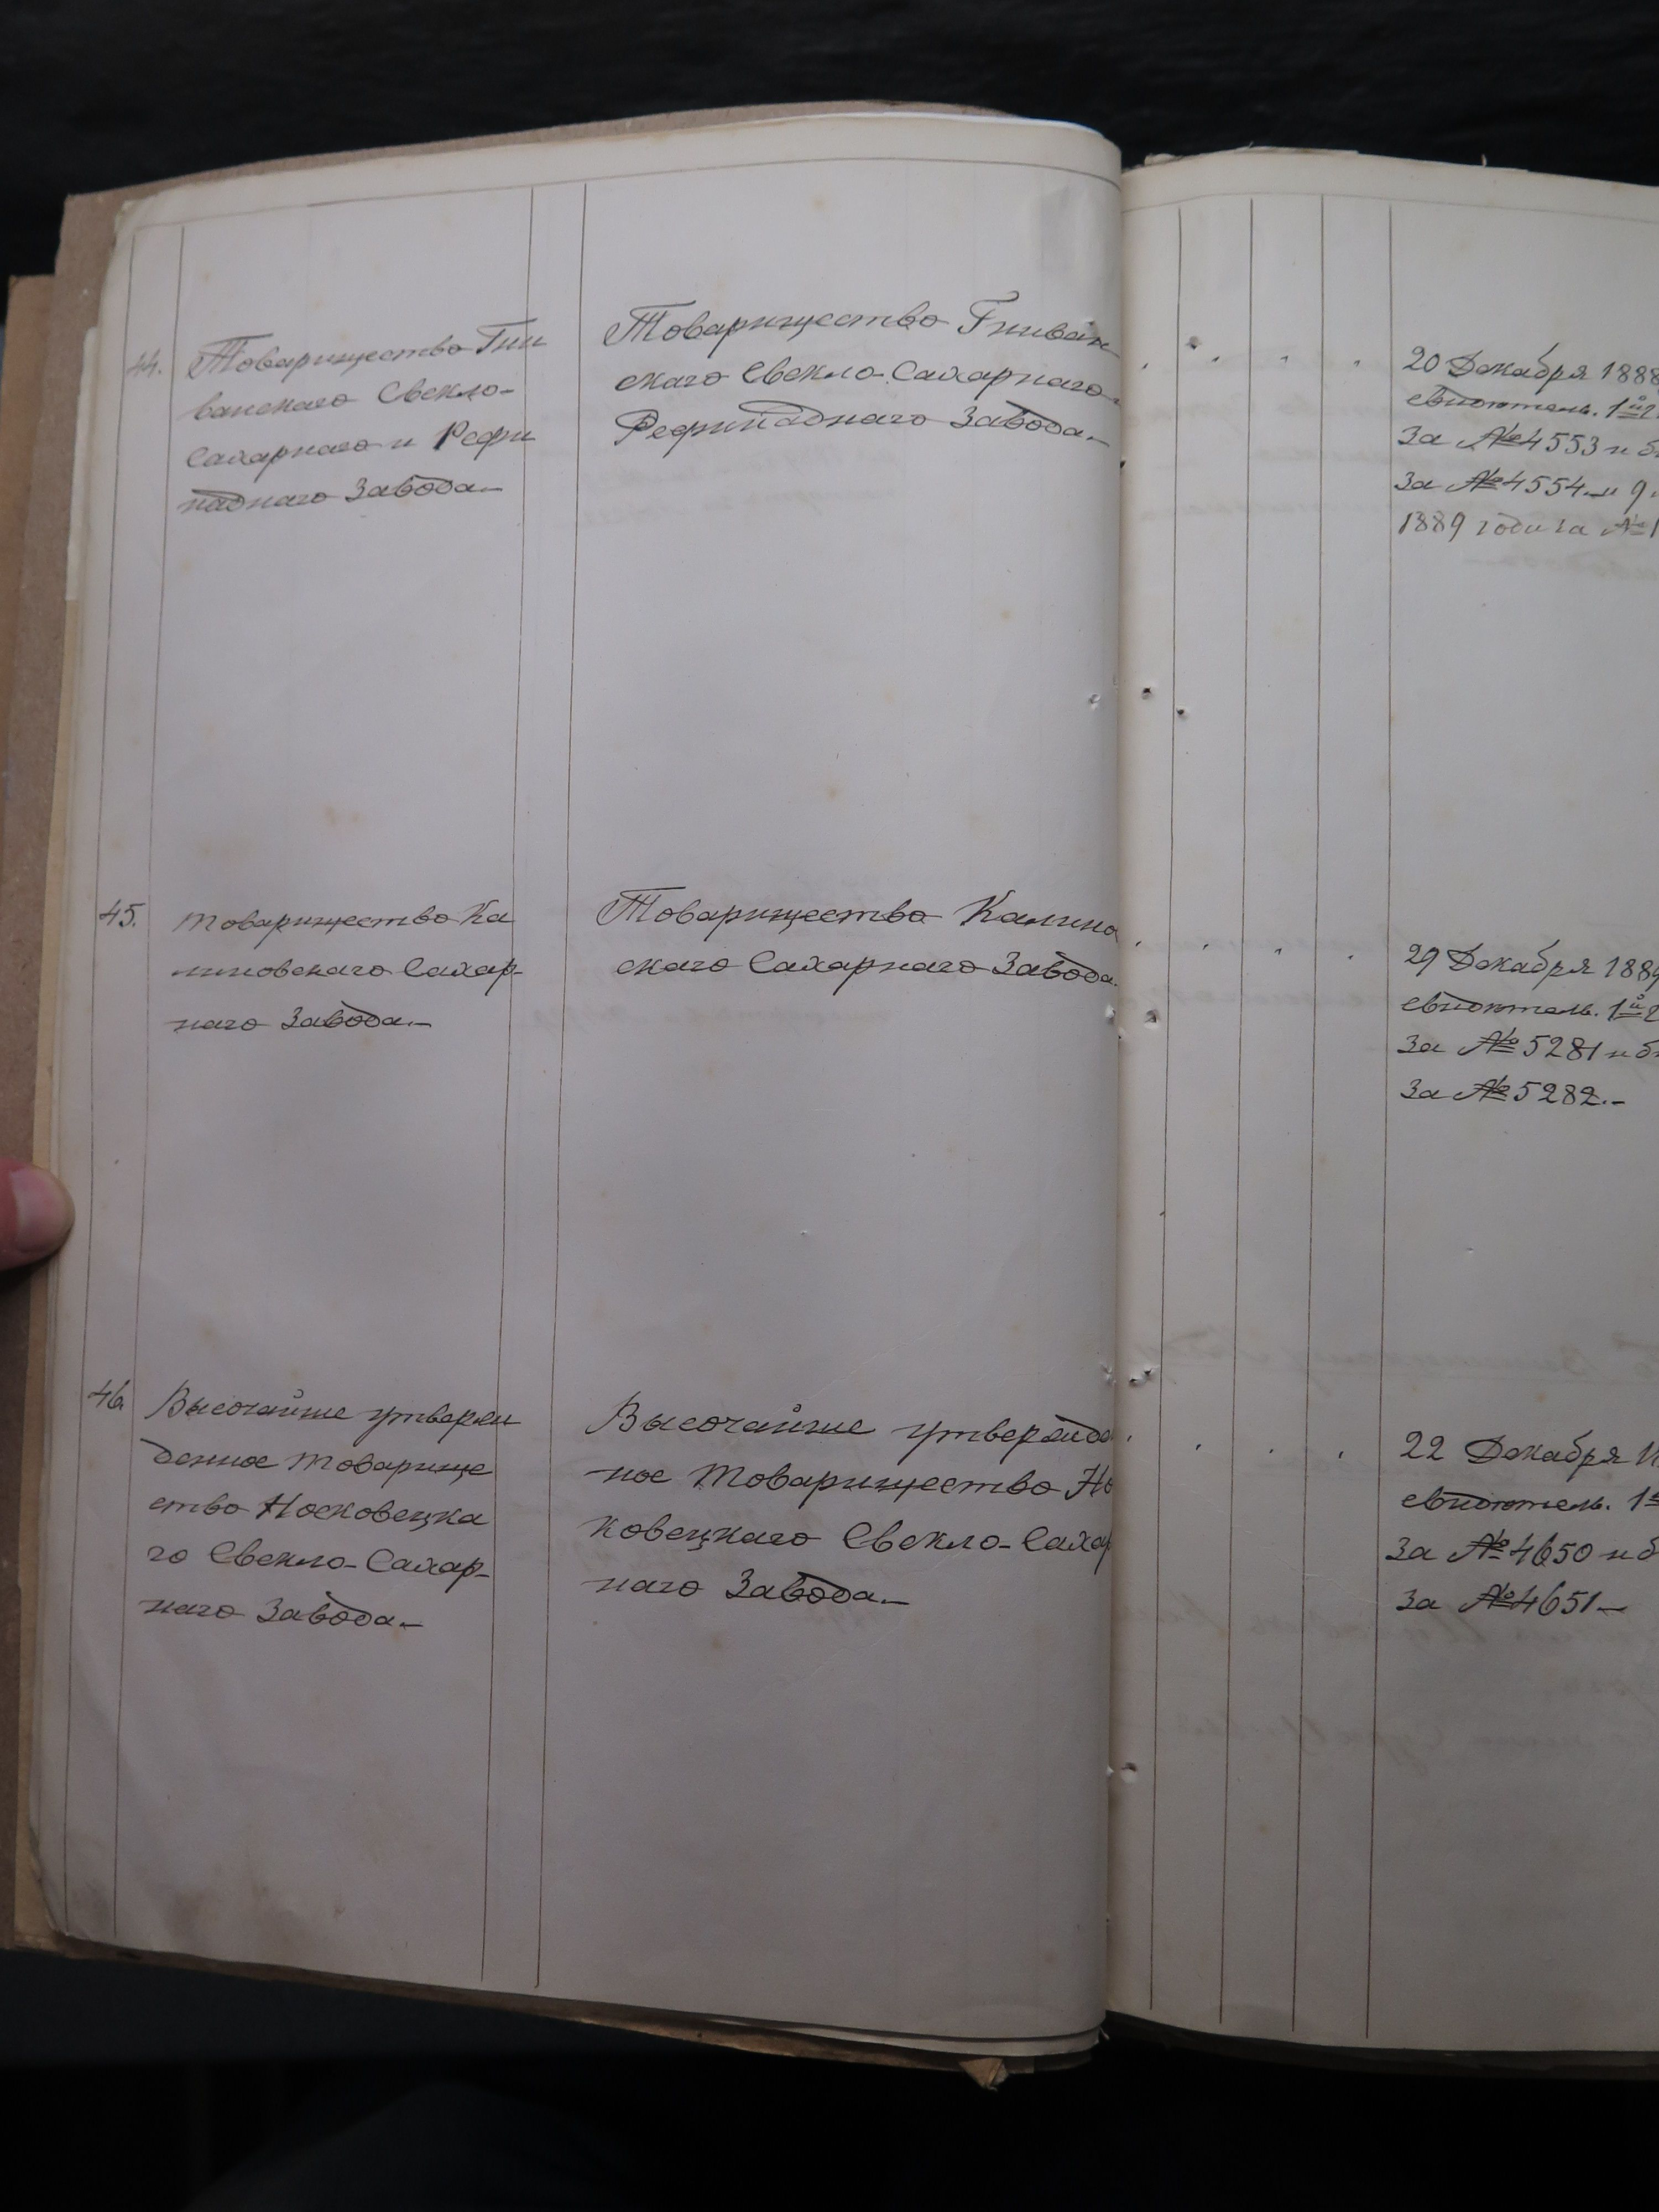 44.
Товарищество Гни
ванскаго Свекло-
Сахарнаго и Рафи
наднаго Завода.—
Товарищество Гниван
скаго Свекло-Сахарнаго
Рафинаднаго Завода.—
20 Декабря 1888
свидѣтель. 1й
За № 4553 и
За № 4554.— и 9
1889 года за №
45.
Товарищество Ка
линовскаго Сахар-
наго Завода.—
Товарищество Калино
скаго Сахарнаго Завода.
29 Декабря 188
свидѣтель. 1й
За № 5281 и
За № 5282.—
46.
Высочайше утверж
денное Товарище
ство Носковецка
го Свекло-Сахар-
наго Завода.—
Высочайше утвержде
ное Товарищество Но
ковецкаго Свекло-Саха
наго Завода.—
22 Декабря
свидѣтель. 1
За № 4650 и
За № 4651—